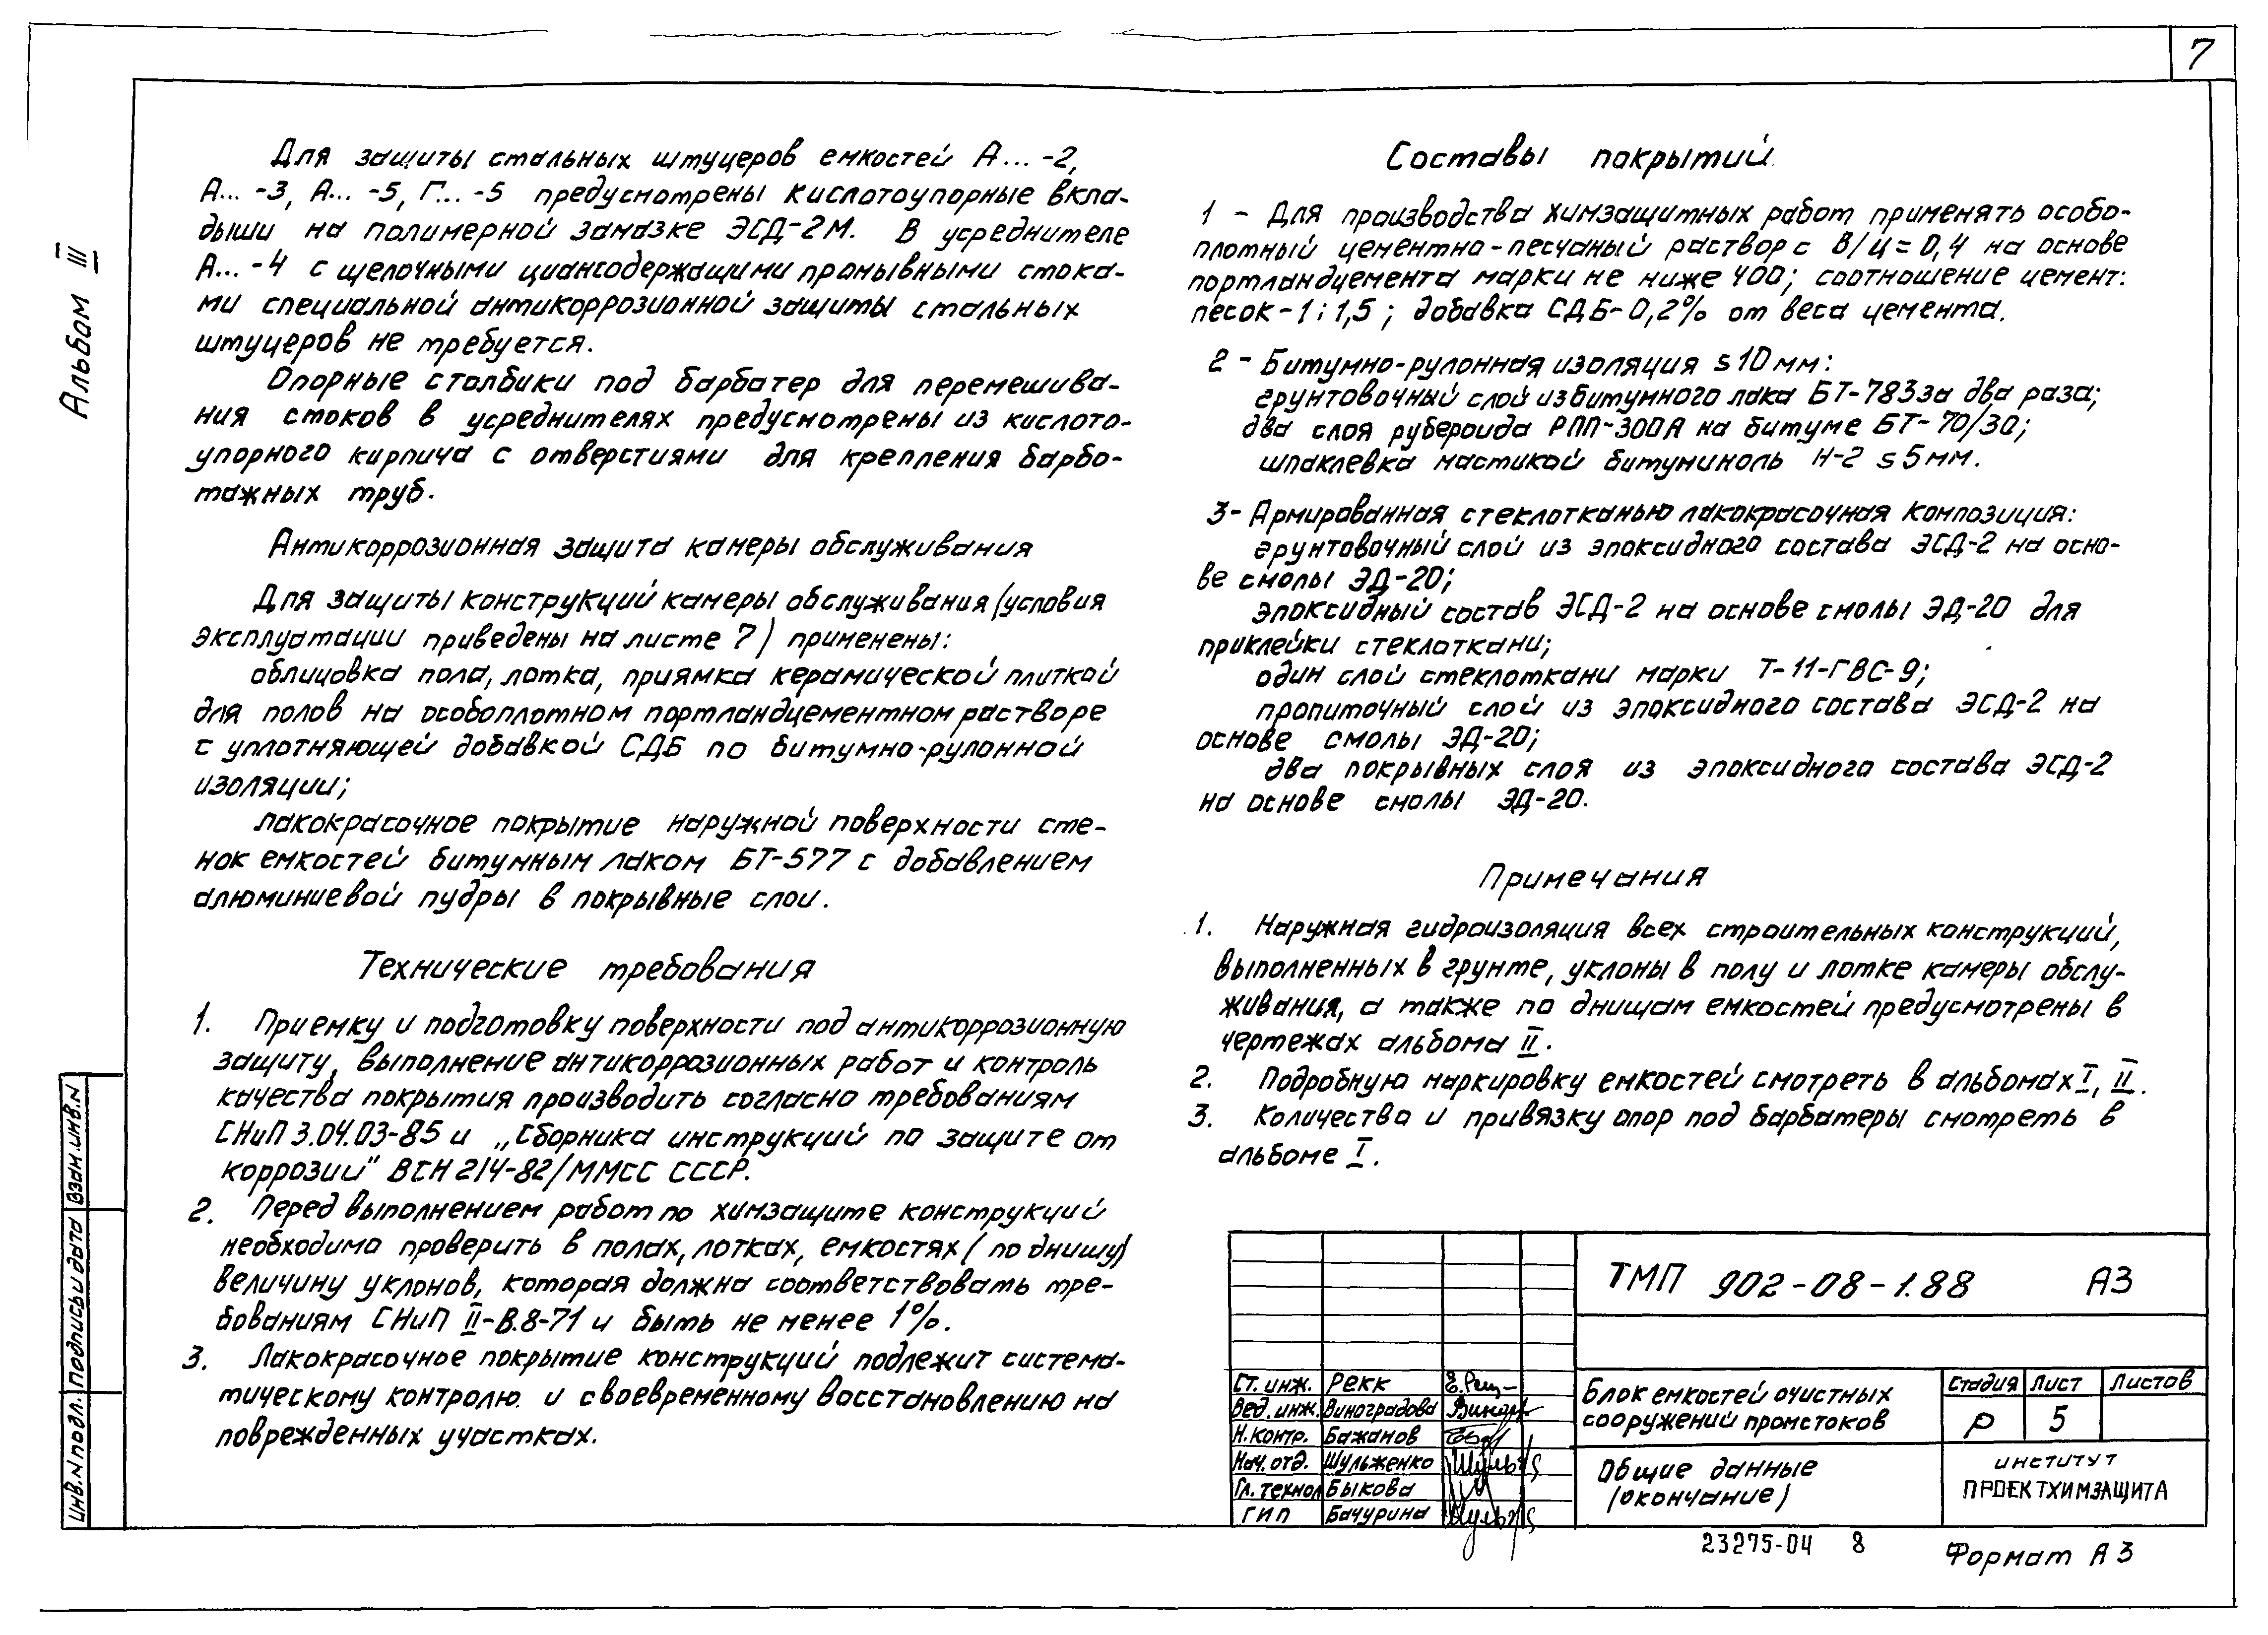 7
Альбом III
Для защиты стальных штуцеров емкостей А... -2,
А... -3, А... -5, Г... -5 предусмотрены кислотоупорные вкла-
дыши на полимерной замазке ЭСД-2М. В усреднителе
А... -4 с щелочными циансодержащими промывными стока-
ми специальной антикоррозионной защиты стальных
штуцеров не требуется.
Опорные столбики под барбатер для перемешива-
ния стоков в усреднителях предусмотрены из кислото-
упорного кирпича с отверстиями для крепления барбо-
тажных труб.
Антикоррозионная защита камеры обслуживания
Для защиты конструкций камеры обслуживания (условия
эксплуатации приведены на листе 7) применены:
облицовка пола, лотка, приямка керамической плиткой
для полов на особоплотном портландцементном растворе
с уплотняющей добавкой СДБ по битумно-рулонной
изоляции;
лакокрасочное покрытие наружной поверхности сте-
нок емкостей битумным лаком БТ-577 с добавлением
алюминиевой пудры в покрывные слои.
Технические требования
1. Приемку и подготовку поверхности под антикоррозионную
защиту, выполнение антикоррозионных работ и контроль
качества покрытия производить согласно требованиям
СНиП 3.04.03-85 и „Сборника инструкций по защите от
коррозии" ВСН 214-82/ММСС СССР.
2. Перед выполнением работ по химзащите конструкций
необходимо проверить в полах, лотках, емкостях (по днищу)
величину уклонов, которая должна соответствовать тре-
бованиям СНиП II-В.8-71 и быть не менее 1%.
3. Лакокрасочное покрытие конструкций подлежит система-
тическому контролю и своевременному восстановлению на
поврежденных участках.
Составы покрытий
1 - Для производства химзащитных работ применять особо-
плотный цементно-песчаный раствор с В/Ц = 0,4 на основе
портландцемента марки не ниже 400; соотношение цемент:
песок - 1 : 1,5 ; добавка СДБ - 0,2% от веса цемента.
2 - Битумно-рулонная изоляция s 10 мм:
грунтовочный слой из битумного лака БТ-783 за два раза;
два слоя рубероида РПП-300А на битуме БТ-70/30;
шпаклевка мастикой битуминоль Н-2 s 5 мм.
3- Армированная стеклотканью лакокрасочная композиция:
грунтовочный слой из эпоксидного состава ЭСД-2 на осно-
ве смолы ЭД-20;
эпоксидный состав ЭСД-2 на основе смолы ЭД-20 для
приклейки стеклоткани;
один слой стеклоткани марки Т-11-ГВС-9;
пропиточный слой из эпоксидного состава ЭСД-2 на
основе смолы ЭД-20;
два покрывных слоя из эпоксидного состава ЭСД-2
на основе смолы ЭД-20.
Примечания
1. Наружная гидроизоляция всех строительных конструкций,
выполненных в грунте, уклоны в полу и лотке камеры обслу-
живания, а также по днищам емкостей предусмотрены в
чертежах альбома II.
2. Подробную маркировку емкостей смотреть в альбомах I, II.
3. Количество и привязку опор под барбатеры смотреть в
альбоме I.
Инв.N подл. Подпись и дата Взам.инв.N
ТМП 902-08-1.88 АЗ
Ст. инж. Рекк
Вед. инж. Виноградова
Н.контр. Бажанов
Нач. отд. Шульженко
Гл. технол Быкова
ГИП Бачурина
Блок емкостей очистных
сооружений промстоков
Стадия Лист Листов
Р 5
Общие данные
(окончание)
ИНСТИТУТ
ПРОЕКТХИМЗАЩИТА
23275-04 8
Формат А3